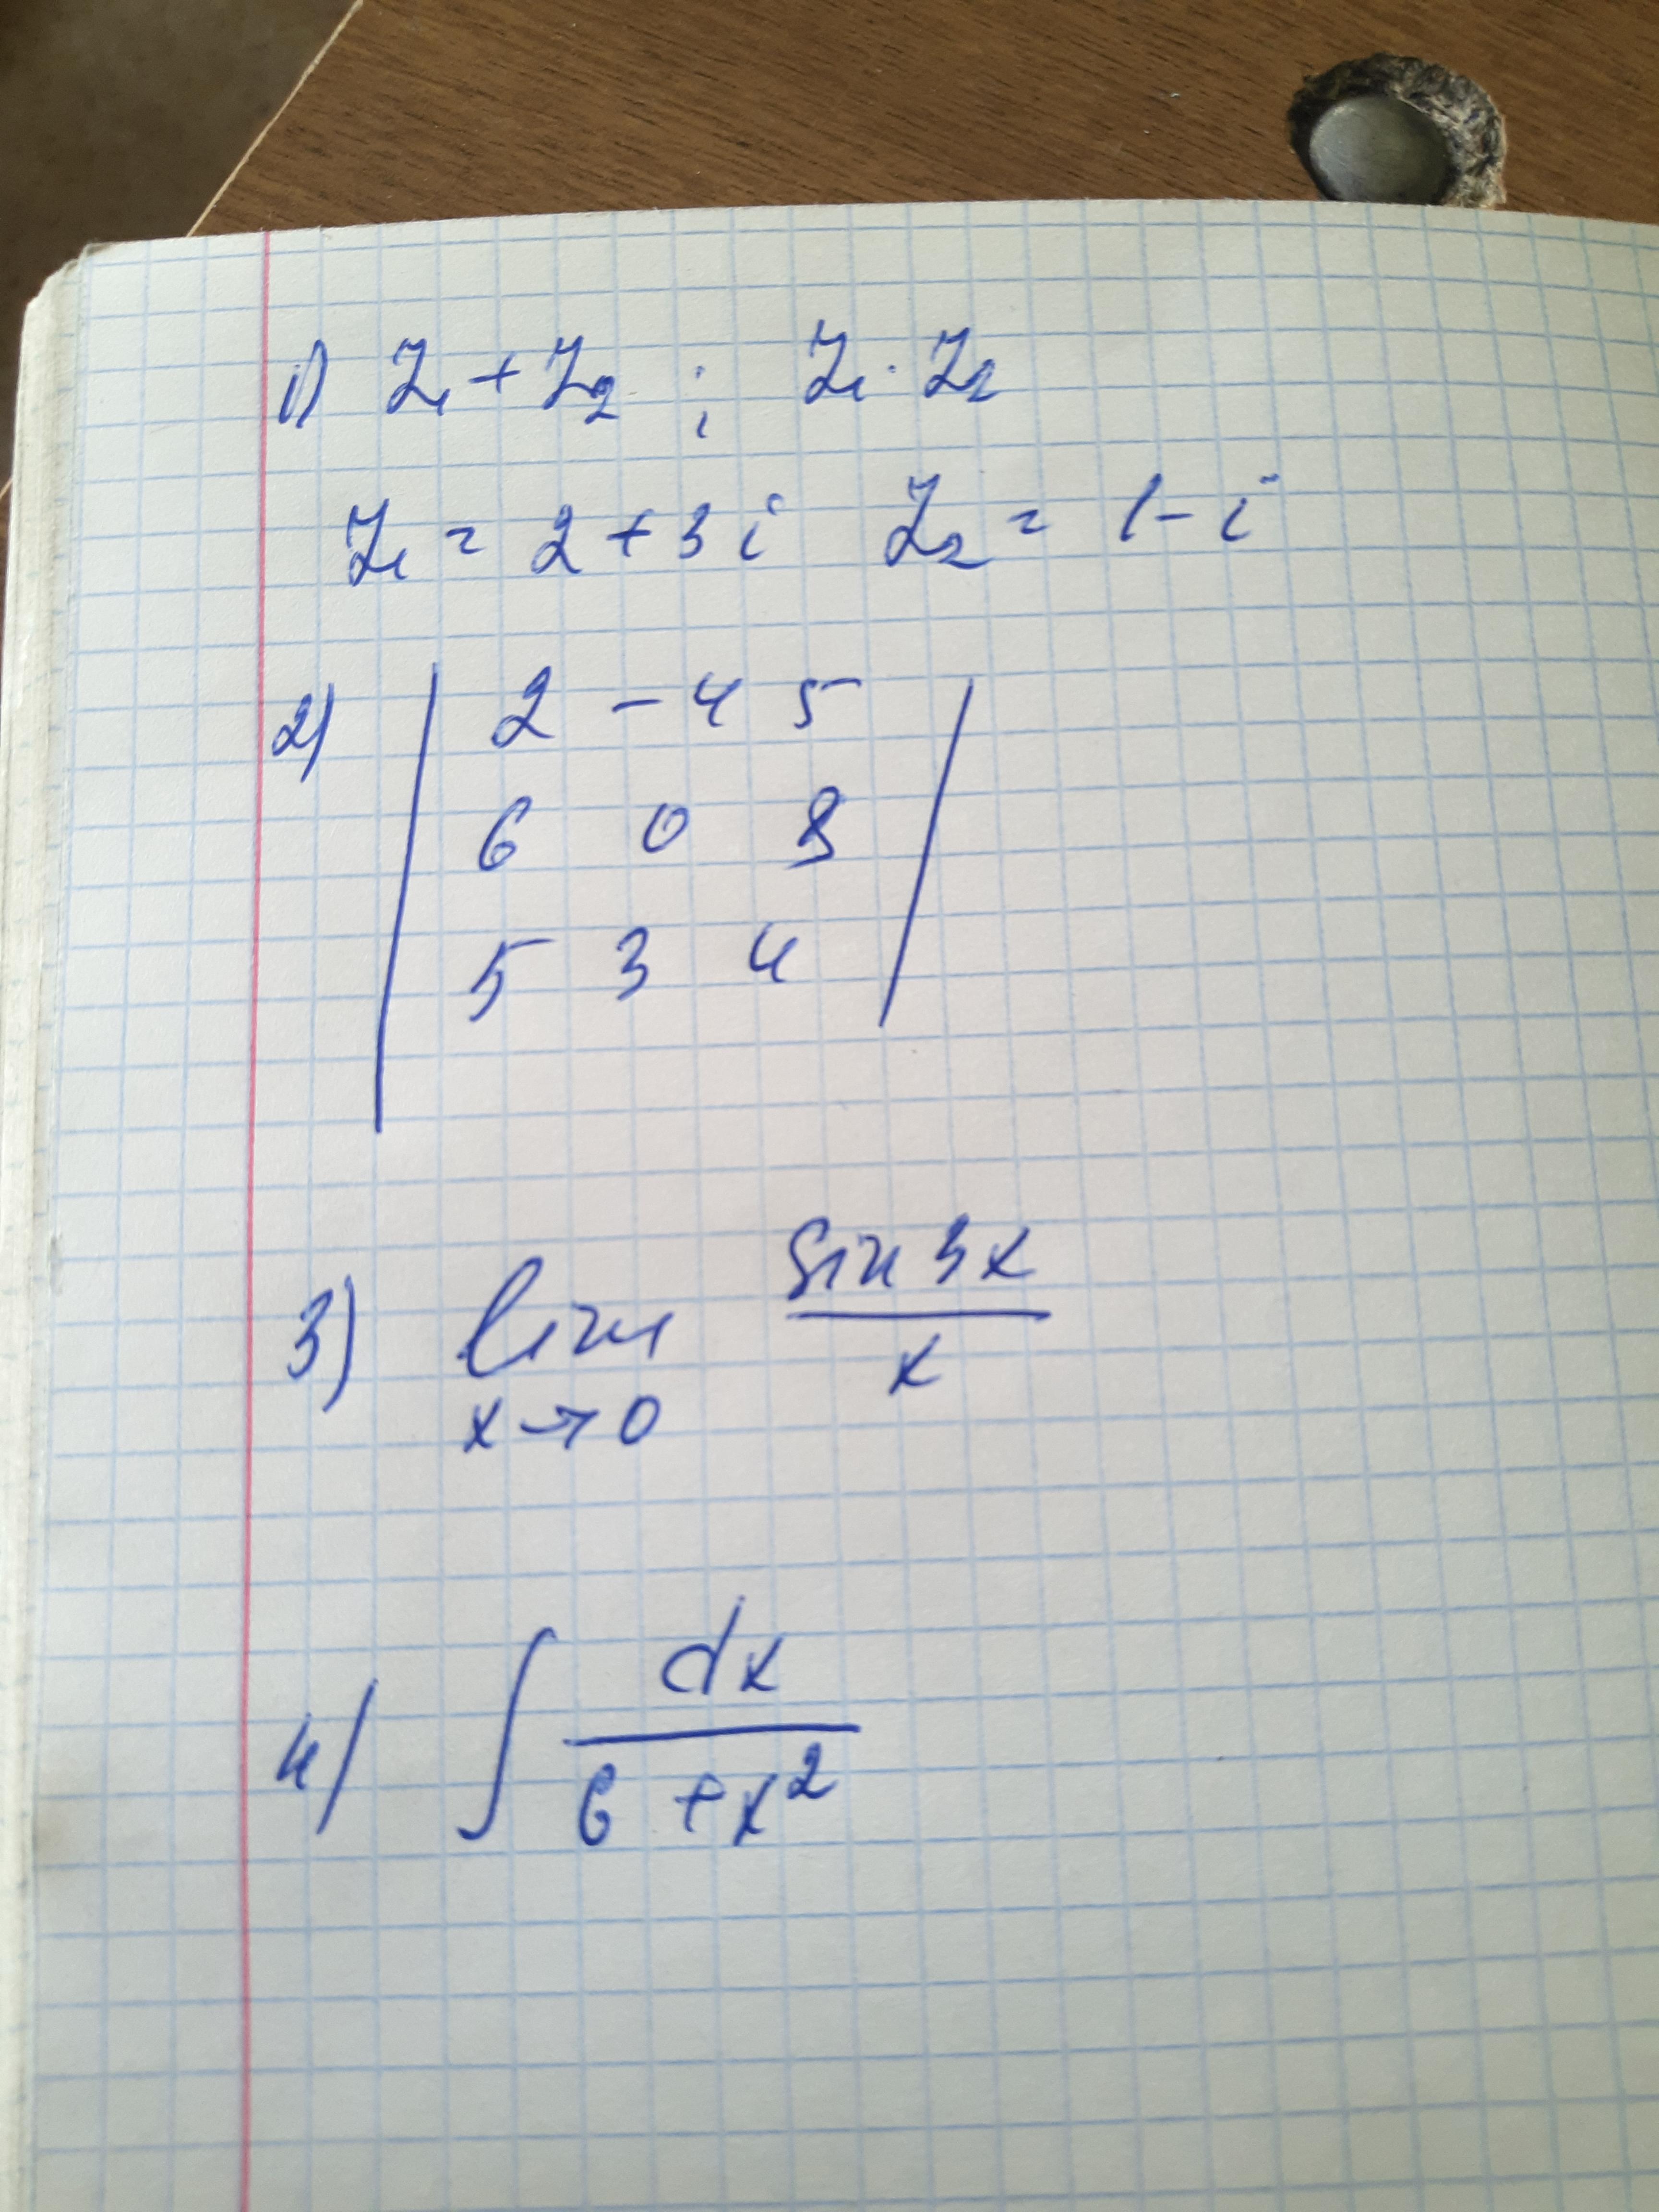 1) Z₁ + Z₂ ; Z₁ · Z₂
Z₁ = 2 + 3i Z₂ = 1 - i
2) | 2 -4 5 |
6 0 8
5 3 4
3) lim sin 3x / x
x → 0
4) ∫ dx / 6 + x²